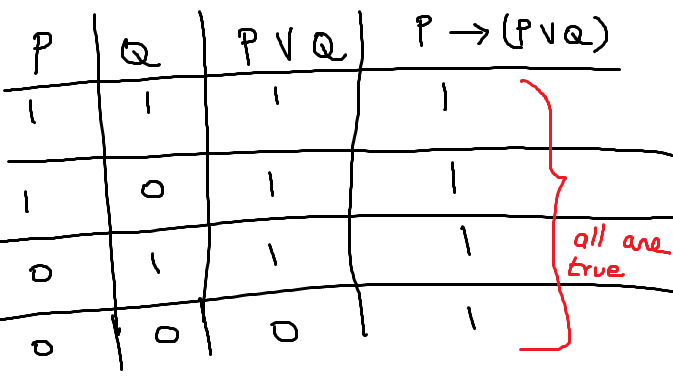 P Q P ∨ Q P → (P ∨ Q)
1 1 1 1
1 0 1 1
0 1 1 1
0 0 0 1
all are
true